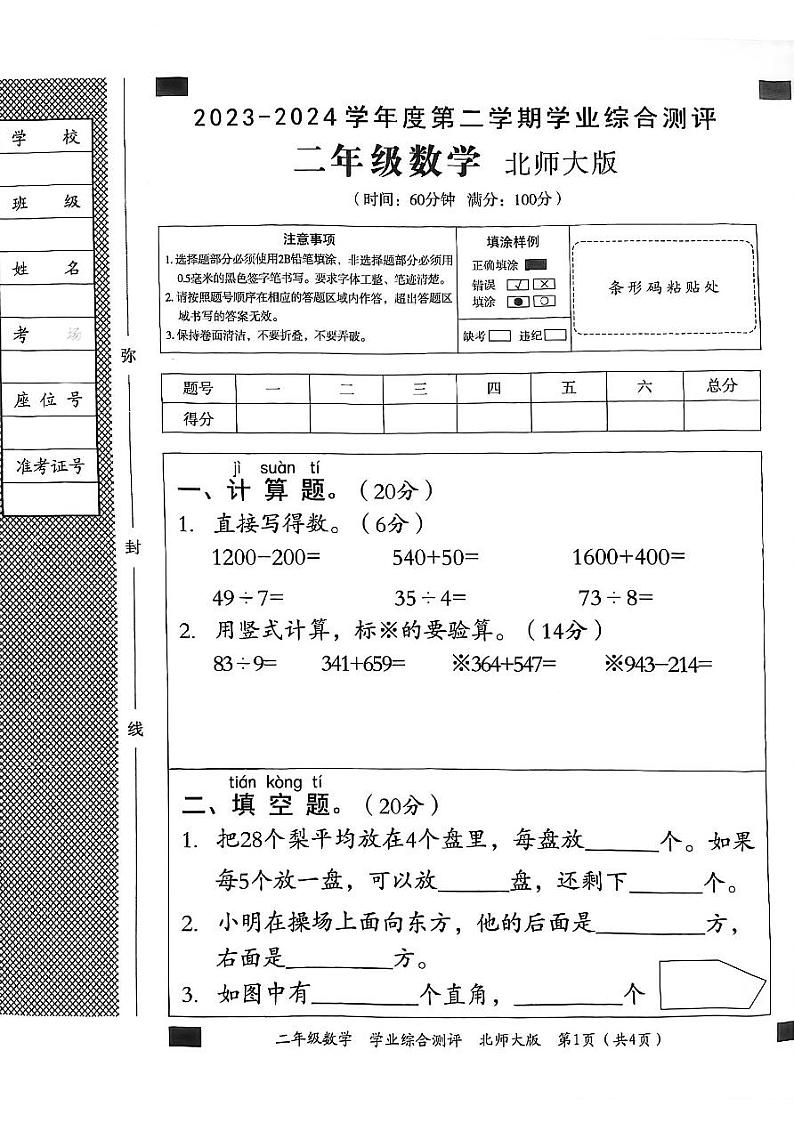 2023-2024学年度第二学期学业综合测评
二年级数学 北师大版
（时间：60分钟 满分：100分）
学 校
班 级
姓 名
考 场
座 位 号
准考证号
弥
封
线
注意事项
1.选择题部分必须使用2B铅笔填涂，非选择题部分必须用
0.5毫米的黑色签字笔书写。要求字体工整、笔迹清楚。
2.请按照题号顺序在相应的答题区域内作答，超出答题区
域书写的答案无效。
3.保持卷面清洁，不要折叠，不要弄破。
填涂样例
正确填涂
错误
填涂
缺考 违纪
条形码粘贴处
题号 一 二 三 四 五 六 总分
得分
jì suàn tí
一、计 算 题。（20分）
1. 直接写得数。（6分）
1200-200= 540+50= 1600+400=
49÷7= 35÷4= 73÷8=
2. 用竖式计算，标※的要验算。（14分）
83÷9= 341+659= ※364+547= ※943-214=
tián kòng tí
二、填 空 题。（20分）
1. 把28个梨平均放在4个盘里，每盘放______个。如果
每5个放一盘，可以放______盘，还剩下______个。
2. 小明在操场上面向东方，他的后面是_________方，
右面是_________方。
3. 如图中有_________个直角，_________个
二年级数学 学业综合测评 北师大版 第1页（共4页）